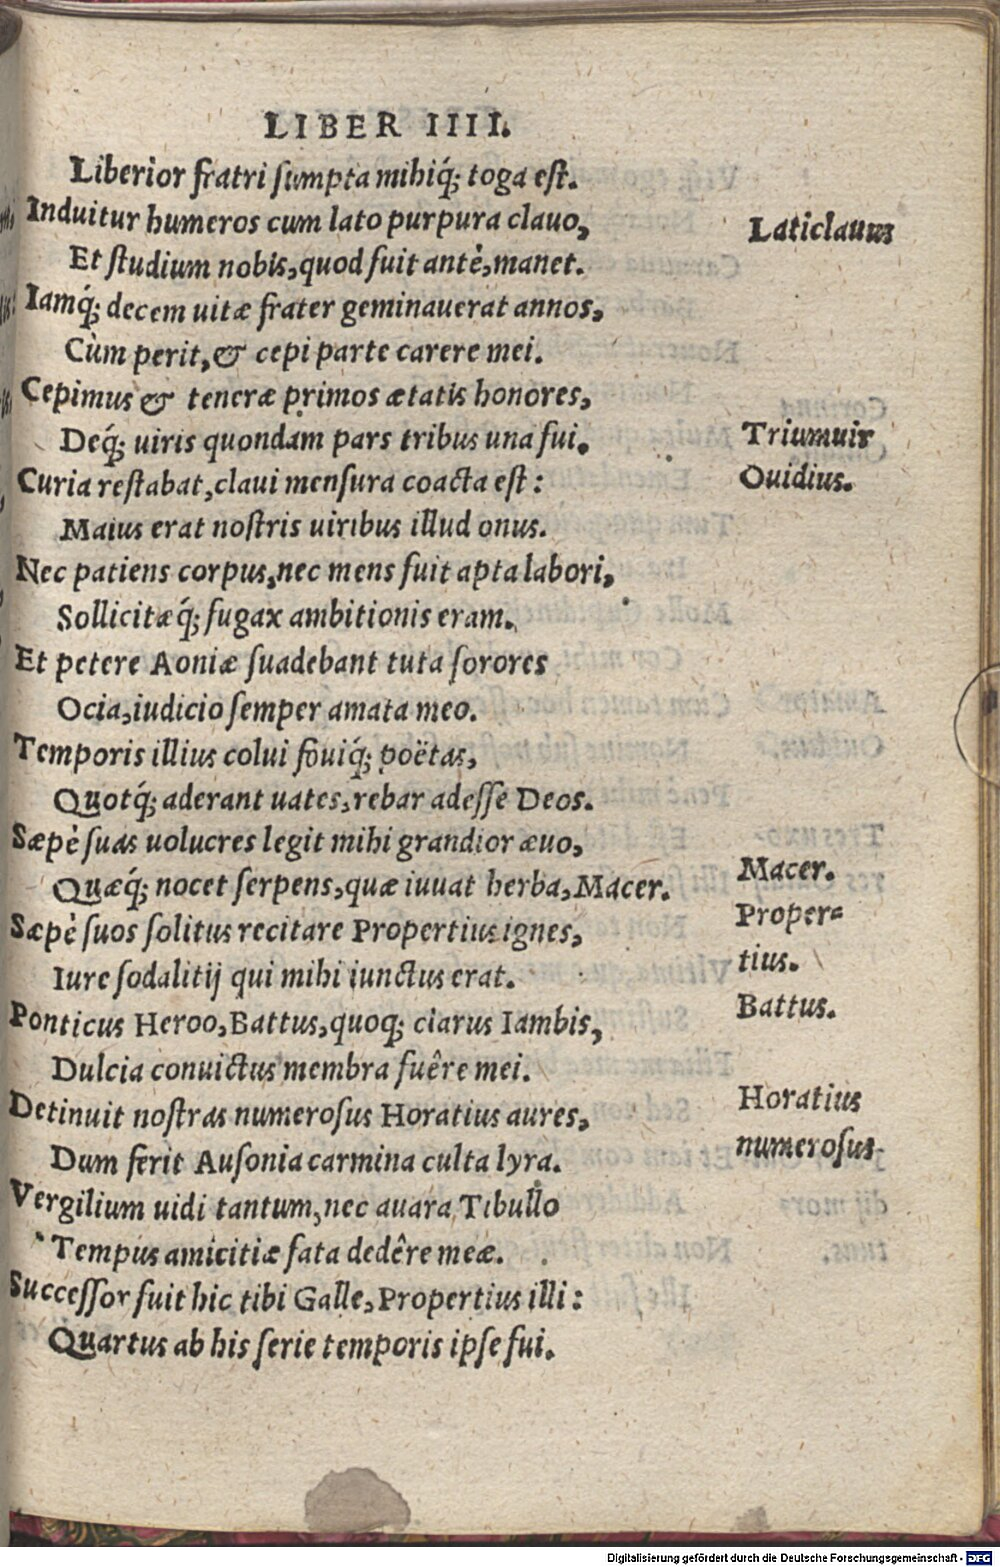 LIBER IIII.
Liberior fratri sumpta mihiq́; toga est.
Induitur humeros cum lato purpura clauo,
Laticlauus
Et studium nobis, quod fuit antè, manet.
Iamq́; decem uitæ frater geminauerat annos,
Cùm perit, & cepi parte carere mei.
Cepimus & teneræ primos ætatis honores,
Deq́; uiris quondam pars tribus una fui.
Triumuir
Curia restabat, claui mensura coacta est:
Ouidius.
Maius erat nostris uiribus illud onus.
Nec patiens corpus, nec mens fuit apta labori,
Sollicitæq́; fugax ambitionis eram.
Et petere Aoniæ suadebant tuta sorores
Ocia, iudicio semper amata meo.
Temporis illius colui fouiq́; poëtas,
Quotq́; aderant uates, rebar adesse Deos.
Sæpè suas uolucres legit mihi grandior æuo,
Quæq́; nocet serpens, quæ iuuat herba, Macer.
Macer.
Sæpè suos solitus recitare Propertius ignes,
Proper=
Iure sodalitij qui mihi iunctus erat.
tius.
Ponticus Heroo, Battus, quoq; clarus Iambis,
Battus.
Dulcia conuictus membra fuêre mei.
Detinuit nostras numerosus Horatius aures,
Horatius
Dum ferit Ausonia carmina culta lyra.
numerosus.
Vergilium uidi tantum, nec auara Tibullo
Tempus amicitiæ fata dedêre meæ.
Successor fuit hic tibi Galle, Propertius illi:
Quartus ab his serie temporis ipse fui.
Digitalisierung gefördert durch die Deutsche Forschungsgemeinschaft - DFG